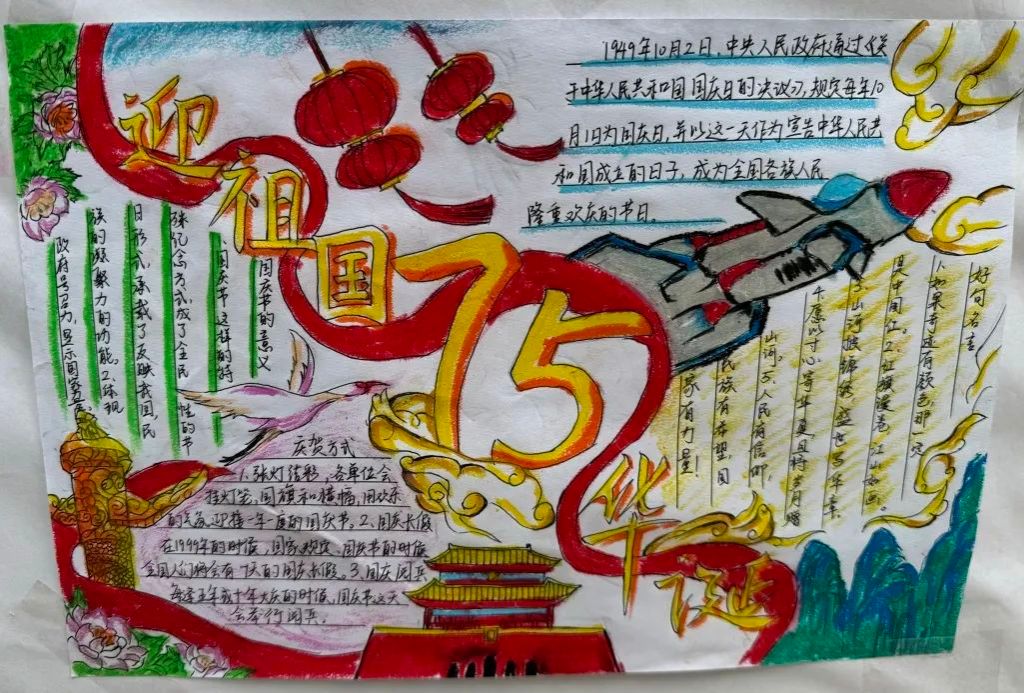 迎祖国75华诞
1949年10月2日,中央人民政府通过《关
于中华人民共和国国庆日的决议》,规定每年10
月1日为国庆日,并以这一天作为宣告中华人民共
和国成立的日子,成为全国各族人民
隆重欢庆的节日。
国庆节的意义
1.国庆节这样的特
殊纪念方式成了全民性的节
日形式,承载了反映我国民
族的凝聚力的功能。2.体现
政府号召力,显示国家
庆贺方式
1.张灯结彩,各单位会
挂灯笼,国旗和横幅,用欢乐
的气氛迎接一年一度的国庆节。2.国庆长假
在1999年的时候,国家规定,国庆节的时候
全国人们将会有7天的国庆长假。3.国庆阅兵
每逢五年或十年大庆的时候,国庆节这天
会举行阅兵。
好句名言
1.如果奇迹有颜色,那一定
是中国红。2.红旗漫卷,江山如画。
3.山河披锦绣,盛世写华章。
4.愿以寸心寄华夏,且将岁月赠
山河。5.人民有信仰,
民族有希望,国
家有力量!